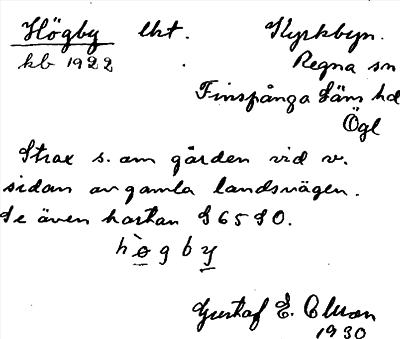 Högby lht. Kyrkbyn.
kb 1922 Regna sn
Finspånga läns hd
Ögl
Strax s. om gården vid v.
sidan av gamla landsvägen.
Se även kartan S 65 S O.
hògby
Gustaf E. Olson
1930